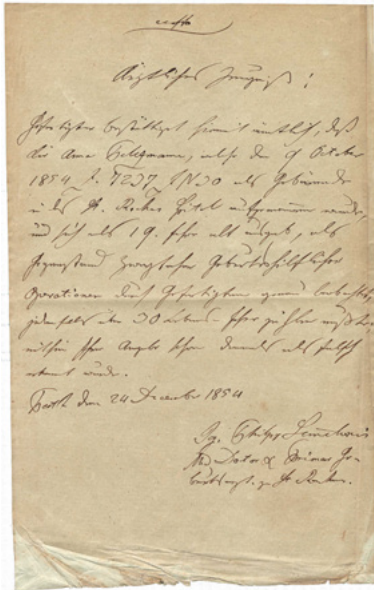 Ärztliches Zeugniß!
Gefertigter bestättiget hiemit ämtlich, daß
die Anna, welche den 9 October
1854 als Gebärende
in das St. Rochus Spital aufgenommen wurde,
und sich als 19 Jahre alt angab, als
Gegenstand geburtshilflicher
Operationen durch Gefertigten genau beobachtet,
jedenfalls über 30 Lebens-Jahre zählen mußte,
mithin ihre Angabe schon damals als falsch
erkannt wurde.
Pesth den 24 December 1854
Ig. Philipp Semmelweis
Med. Doctor & Primar Ge-
burtsarzt zu St. Rochus.